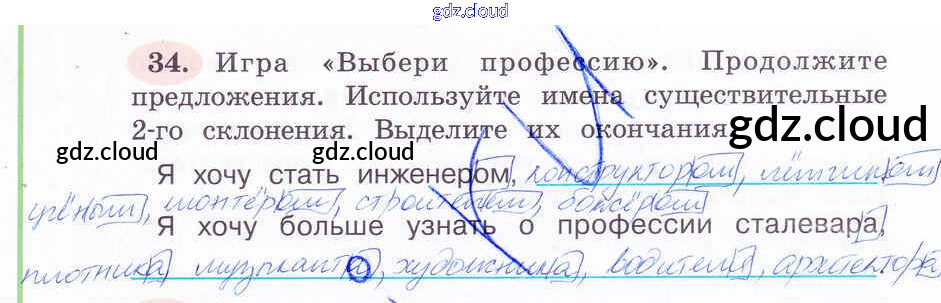 gdz.cloud
34. Игра «Выбери профессию». Продолжите
предложения. Используйте имена существительные
2-го склонения. Выделите их окончания.
gdz.cloud
gdz.cloud gdz.cloud
Я хочу стать инженером, конструктором, лётчиком
учёным, монтёром, строителем, боксёром
Я хочу больше узнать о профессии сталевара,
плотника, музыканта, художника, водителя, архитектора